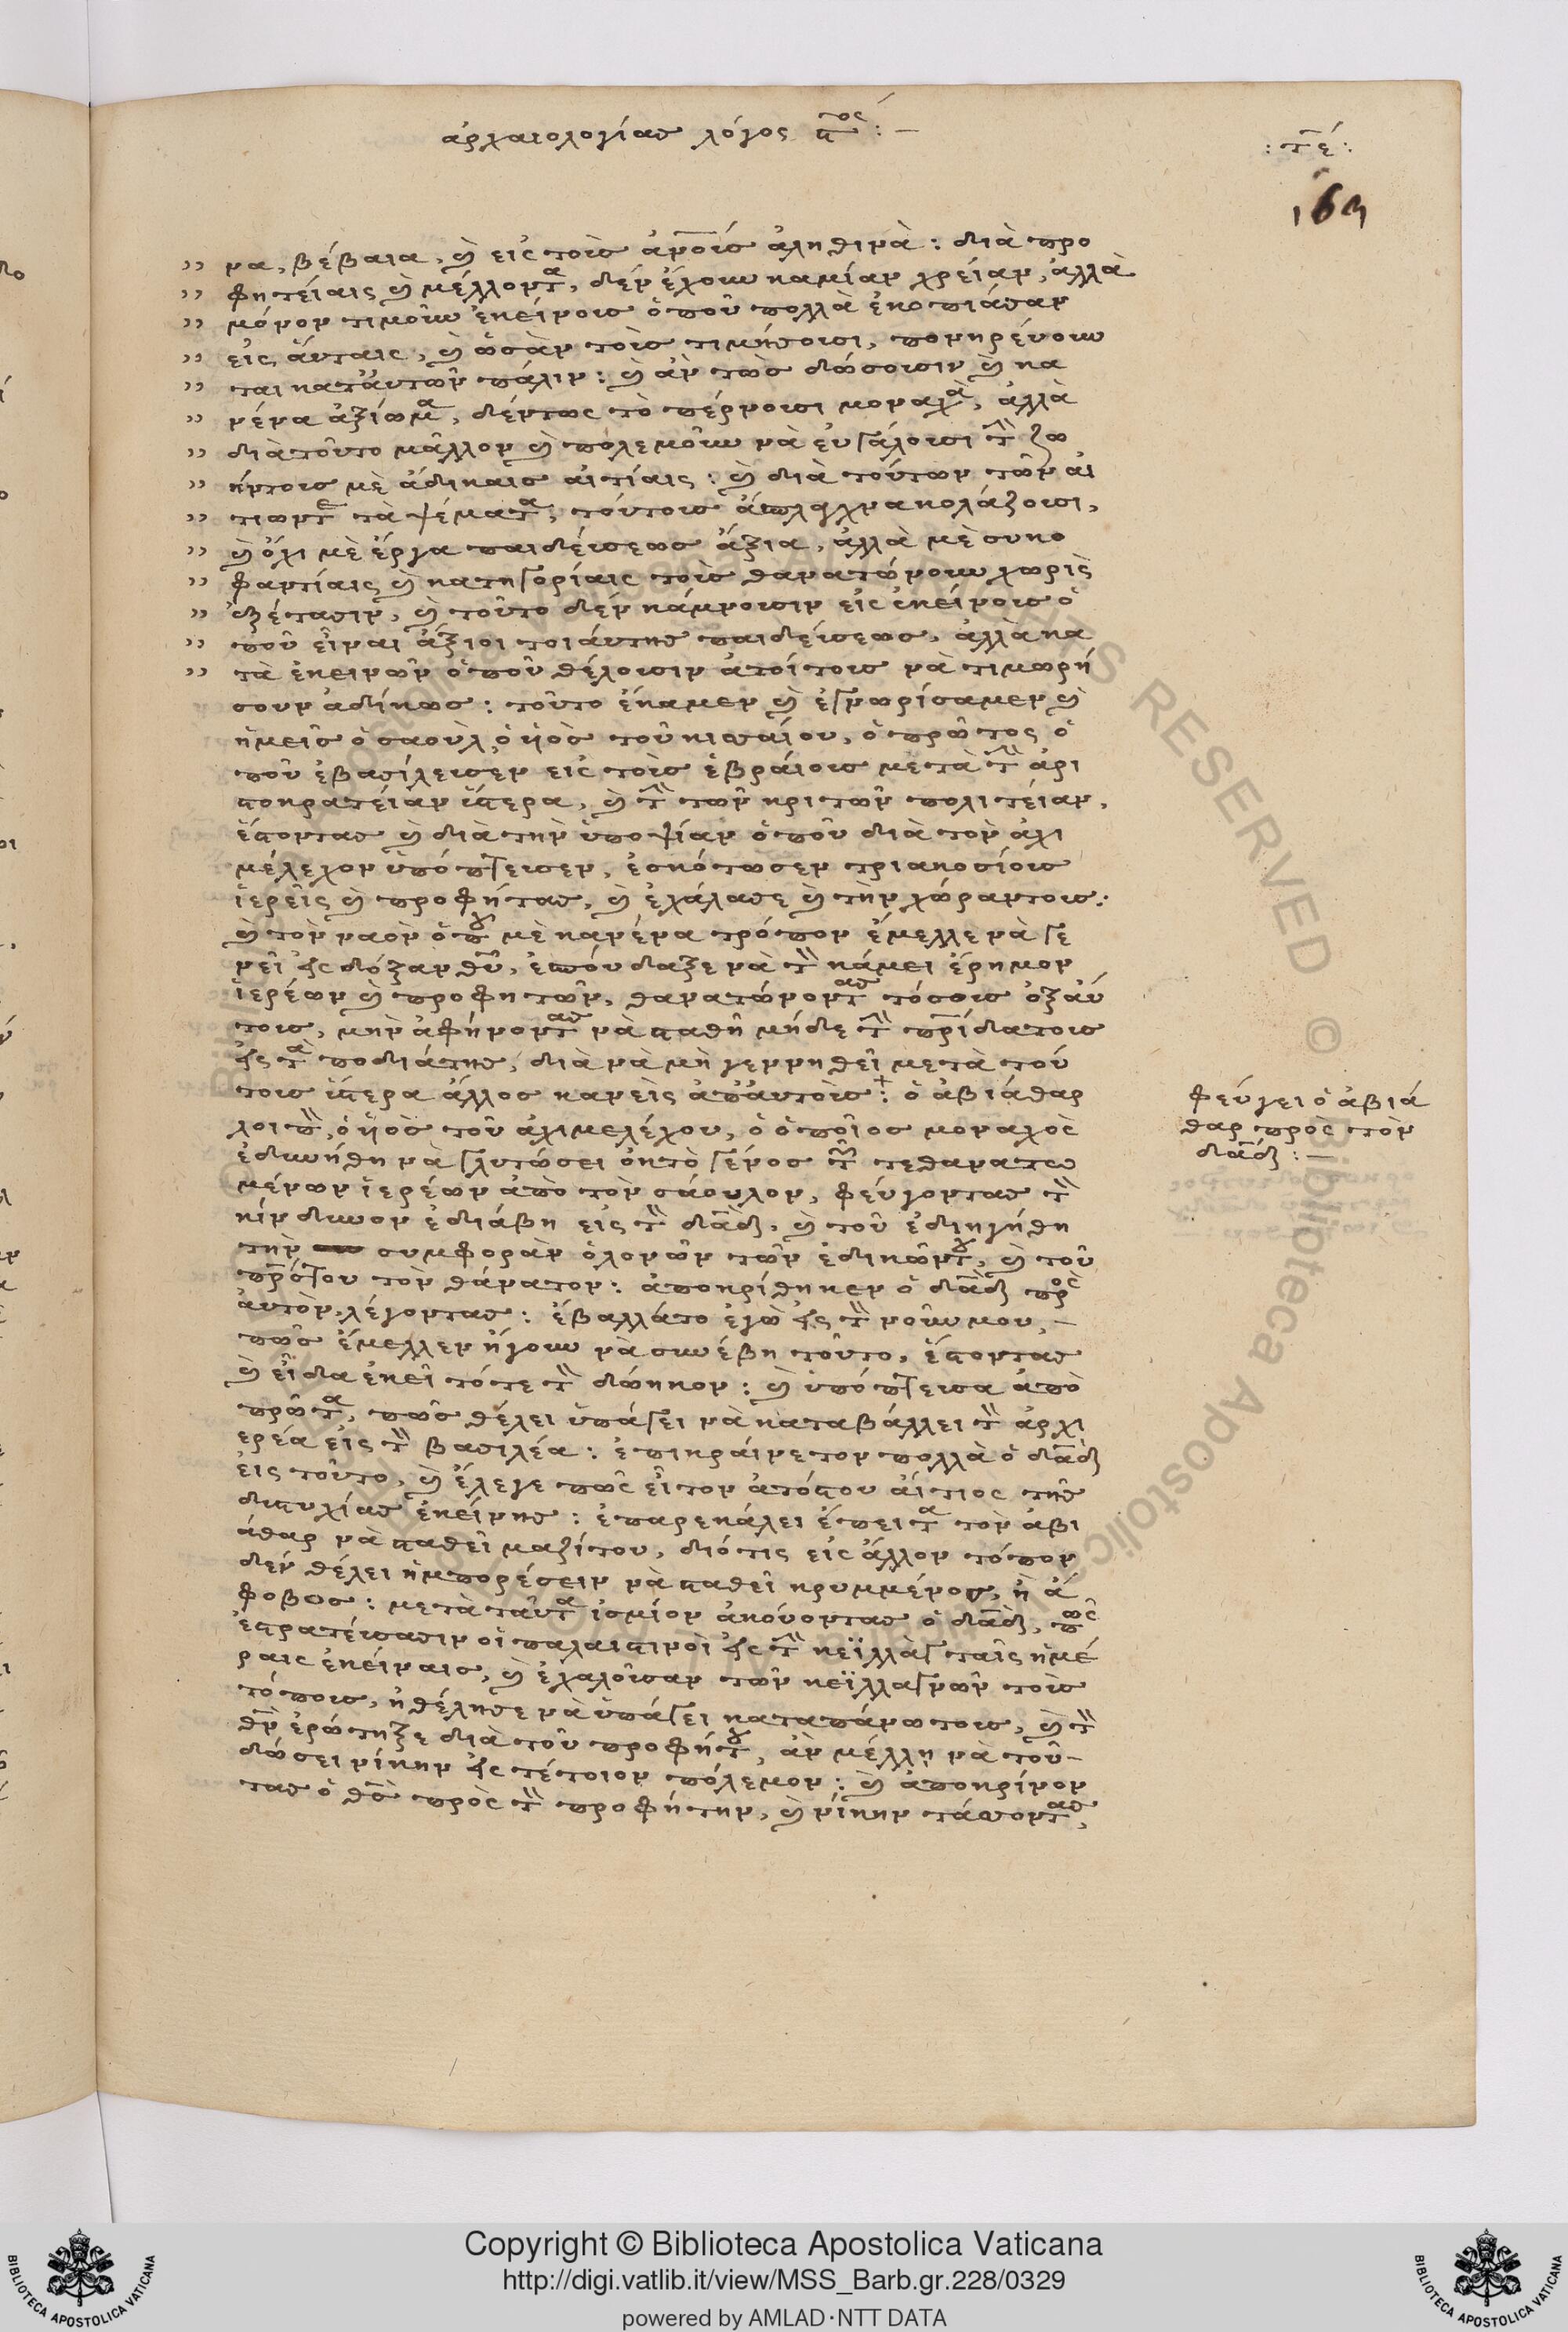 ἀρχαιολογίας λόγος ϛ^ος :—
: τέ :
169
να, βέβαια, καὶ εἰς τοὺς ἀνοὺς ἀληθινὰ : διὰ προ
φητείαις καὶ μέλλοντα, δὲν ἔχουν καμίαν χρείαν, ἀλλὰ
μόνον τιμοῦν ἐκείνους ὁποῦ πολλὰ ἐκοπιάσαν
εἰς ἄυταις, καὶ ὡσὰν τοὺς τιμήσουσι, πονηρεύουν
ται κατ' ἀυτῶν πάλιν : καὶ ἂν τὼς δώσουσιν καὶ κα
νένα ἀξίωμα, δέντως τὸ πέρνουσι μοναχὰ, ἀλλὰ
διὰ τοῦτο μᾶλλον καὶ πολεμοῦν νὰ ἐυγάλουσι τὴν ζω
ήντους μὲ ἀδίκαις αἰτίαις : καὶ διὰ τούτων τῶν αἰ
τιων τὰ ψέματα, τούτους ἄσπλαγχνα κολάζουσι,
καὶ ὄχι μὲ ἔργα παιδεύσεως ἄξια, ἀλλὰ μὲ συκο
φαντίαις καὶ κατηγορίαις τοὺς θανατώνουν χωρὶς
ἐξέτασιν, καὶ τοῦτο δὲν κάμνουσιν εἰς ἐκείνους ὁ
ποῦ εἶναι ἄξιοι τοιάυτης παιδεύσεως, ἀλλὰ κα
τὰ ἐκεινῶν ὁποῦ θέλουσιν ἀτοίτους νὰ τιμωρή
σουν ἀδίκως : τοῦτο ἐκαμεν καὶ ἐγνωρίσαμεν καὶ
ἡμεῖς ὁ σαοὺλ ὁ ὑιὸς τοῦ κισαίου, ὁ πρῶτος ὁ
ποῦ ἐβασίλευσεν εἰς τοὺς ἑβραίους μετὰ τὴν ἀρι
στοκρατείαν ὕστερα, καὶ τὴν τῶν κριτῶν πολιτείαν,
ἔστοντας καὶ διὰ τὴν ὑποψίαν ὁποῦ διὰ τὸν ἀχι
μέλεχον ὑπόπτευσεν, ἐσκότωσεν τριακοσίους
ἱερεῖς καὶ προφήτας, καὶ ἐχάλασε καὶ τὴν χώραντους :
καὶ τὸν ναὸν ὁποῦ μὲ κανένα τρόπον ἔμελλε νὰ γε
νεῖ εἰς δόξαν θῦ, ἐσπούδαξε νὰ τὸν κάμει ἔρημον
ἱερέων καὶ προφητῶν, θανατώνοντας τόσους ὀξἀύ
τους, μὴν ἀφήνοντας νὰ σταθῆ μήδε τὴν πρίδατους
εἰς τὰ ποδιάτης, διὰ νὰ μὴ γεννηθεῖ μετὰ τού
τους ὕστερα ἄλλος κανεὶς ἀπἀυτοὺς :+ ὁ ἀβιάθαρ
λοιπὸν, ὁ ὑιὸς τοῦ ἀχιμελέχου, ὁ ὁποῖος μοναχὸς
ἐδυνήθη νὰ γλυτώσει ὀκτὸ γένος τῶν τεθανατω
μένων ἱερέων ἀπὸ τὸν σάουλον, φεύγοντας τὸν
κίνδυνον ἐδιάβη εἰς τὸν δᾶδ, καὶ τοῦ ἐδιηγήθη
τὴν συμφορὰν ὁλονῶν τῶν ἐδικῶντου, καὶ τοῦ
πρότου τὸν θάνατον : ἀποκρίθηκεν ὁ δᾶδ πρὸς
ἀυτὸν, λέγοντας : ἔβαλλάτο ἐγὼ εἰς τὸν νοῦν μου, —
πῶς ἔμελλεν ἤγουν νὰ συνέβη τοῦτο, ἔστοντας
καὶ εἶδα ἐκεῖ τότε τὸν δώηκον : καὶ ὑπόπτευσα ἀπὸ
πρῶτα, πῶς θέλει ὑπάγει νὰ καταβάλλει τὸν ἀρχι
ερέα εἰς τὸν βασιλέα : ἐπικραίνετον πολλὰ ὁ δᾶδ
εἰς τοῦτο, καὶ ἔλεγε πῶς εἶτον ἀτόστου ἀίτιος τῆς
διστυχίας ἐκείνης : ἐπαρεκάλει ἔπειτα τὸν ἀβι
άθαρ νὰ σταθεῖ μαζίτου, διότις εἰς ἄλλον τόπον
δὲν θέλει ἠμπορέσειν νὰ σταθεῖ κρυμμένος, ἢ ἄ
φοβος : μετὰ ταῦτα ἰσμίον ἀκούοντας ὁ δᾶδ, πῶς
ἐστρατεύσασιν οἱ παλαιστινοὶ εἰς τὴν κεϊλλὰγ ταῖς ἡμέ
ραις ἐκείναις, καὶ ἐχαλοῦσαν τῶν κεϊλλαγνῶν τοὺς
τόπους, ἠθέλησε νὰ ὑπάγει καταπάνωτους, καὶ τὸν
θν ἐρώτηξε διὰ τοῦ προφήτου, ἂν μέλλη νὰ τοῦ —
δώσει νίκην εἰς τέτοιον πόλεμον : καὶ ἀποκρίνον
τας ὁ θς πρὸς τὸν προφήτην, καὶ νίκην τάσσοντας,
φεύγει ὁ ἀβιά
θαρ πρὸς τὸν
δᾶδ : —
Copyright © Biblioteca Apostolica Vaticana
http://digi.vatlib.it/view/MSS_Barb.gr.228/0329
powered by AMLAD·NTT DATA
BIBLIOTECA APOSTOLICA VATICANA
BIBLIOTECA APOSTOLICA VATICANA